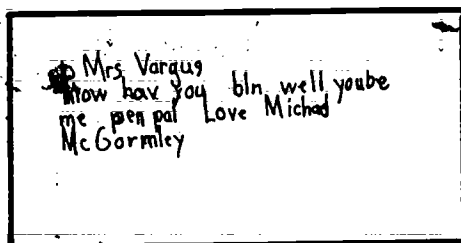 to Mrs Vargus
How hav you bln well yoube
me pen pal Love Michael
McGormley